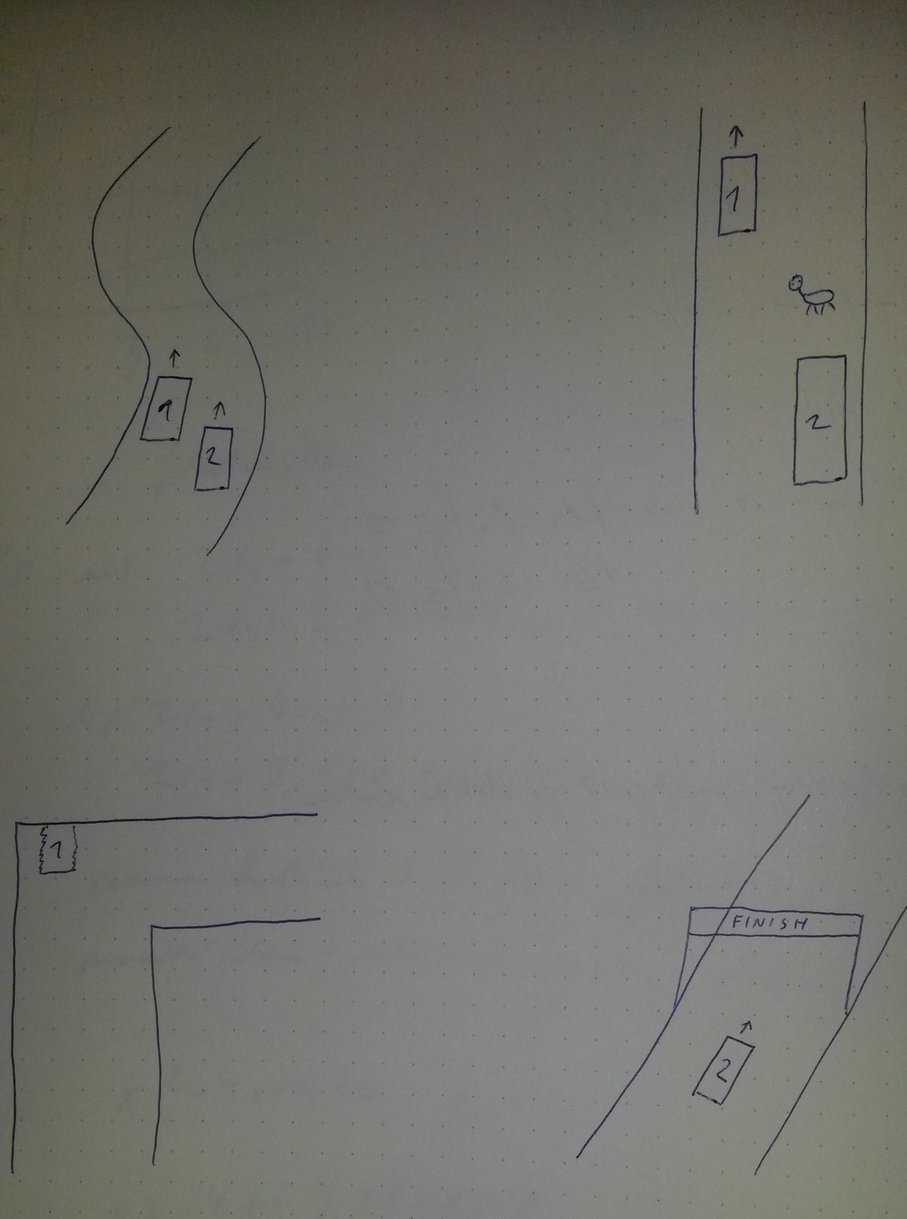 1
2
1
2
1
FINISH
2